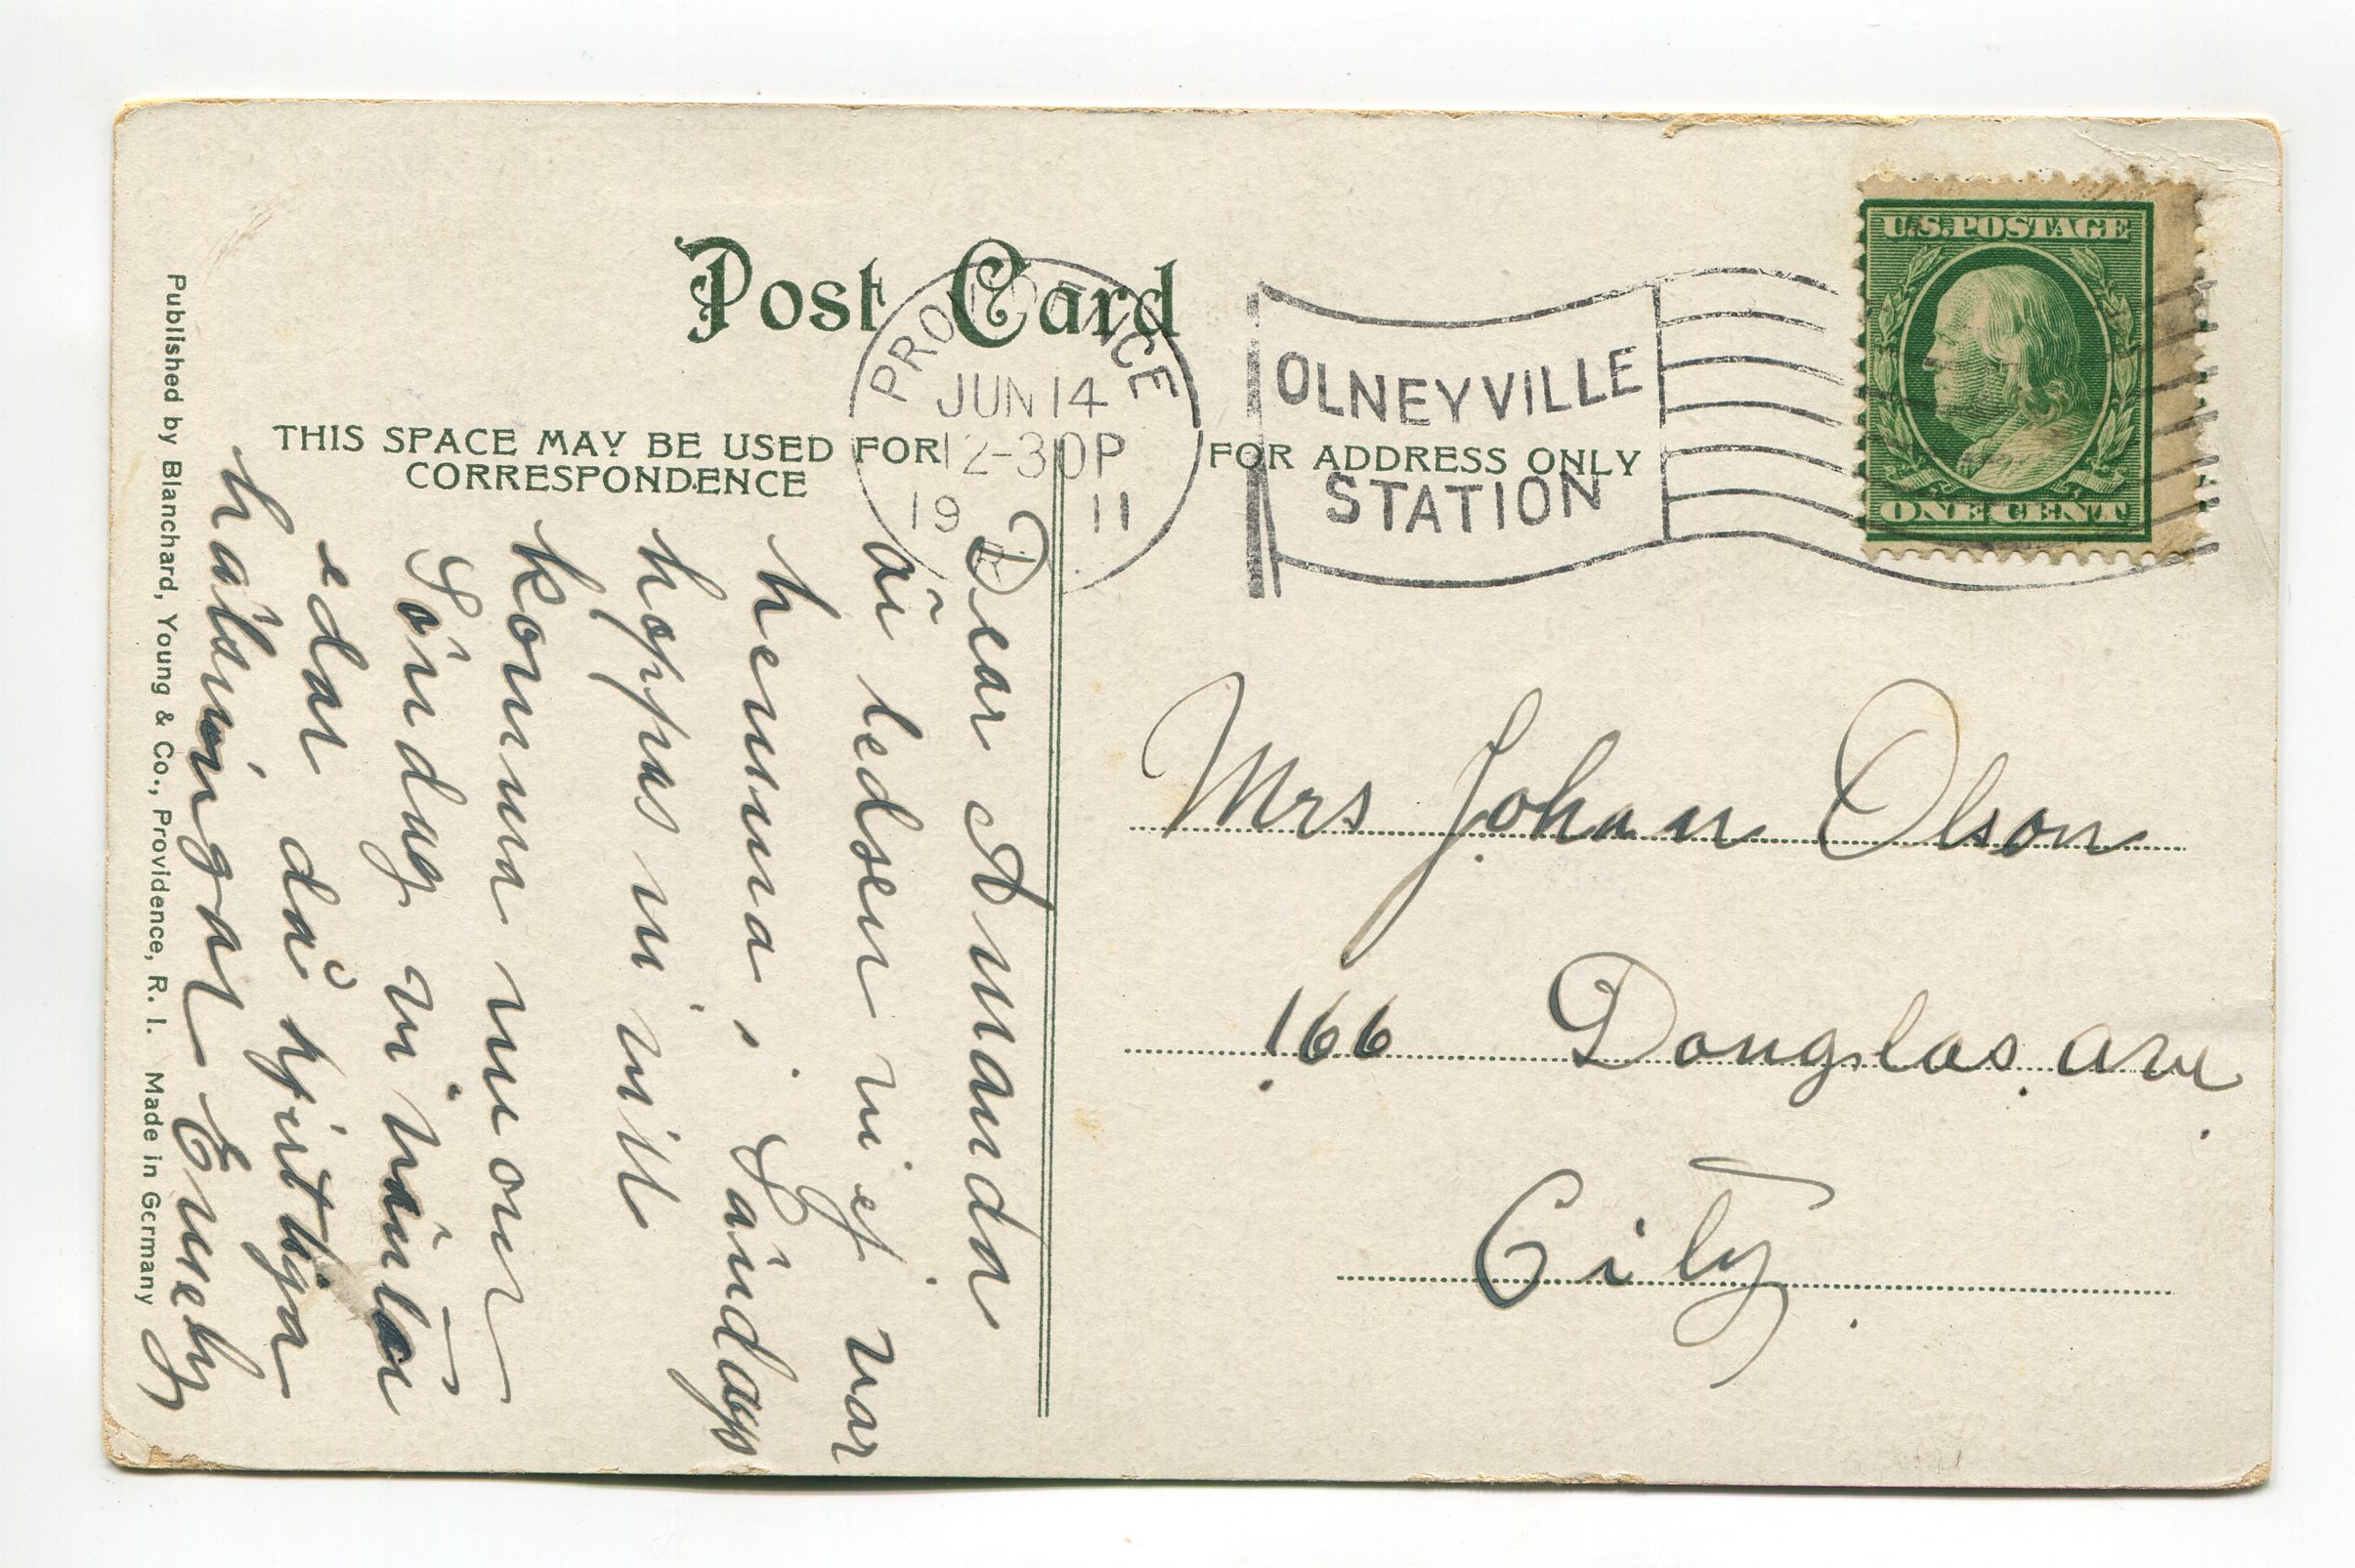 Post Card
PROVIDENCE
JUN 14
12-30P
19 11
OLNEYVILLE
STATION
U.S. POSTAGE
ONE CENT
THIS SPACE MAY BE USED FOR
CORRESPONDENCE
FOR ADDRESS ONLY
Mrs Johan Olson
166 Douglas ave.
City.
Dear Amanda
äi ledsen vi ej var
hemma i Såndag
hoppas ni vill
komma när om
Söndag vi väntar
edar då hjertliga
hälsningar Emely
Published by Blanchard, Young & Co., Providence, R. I. Made in Germany